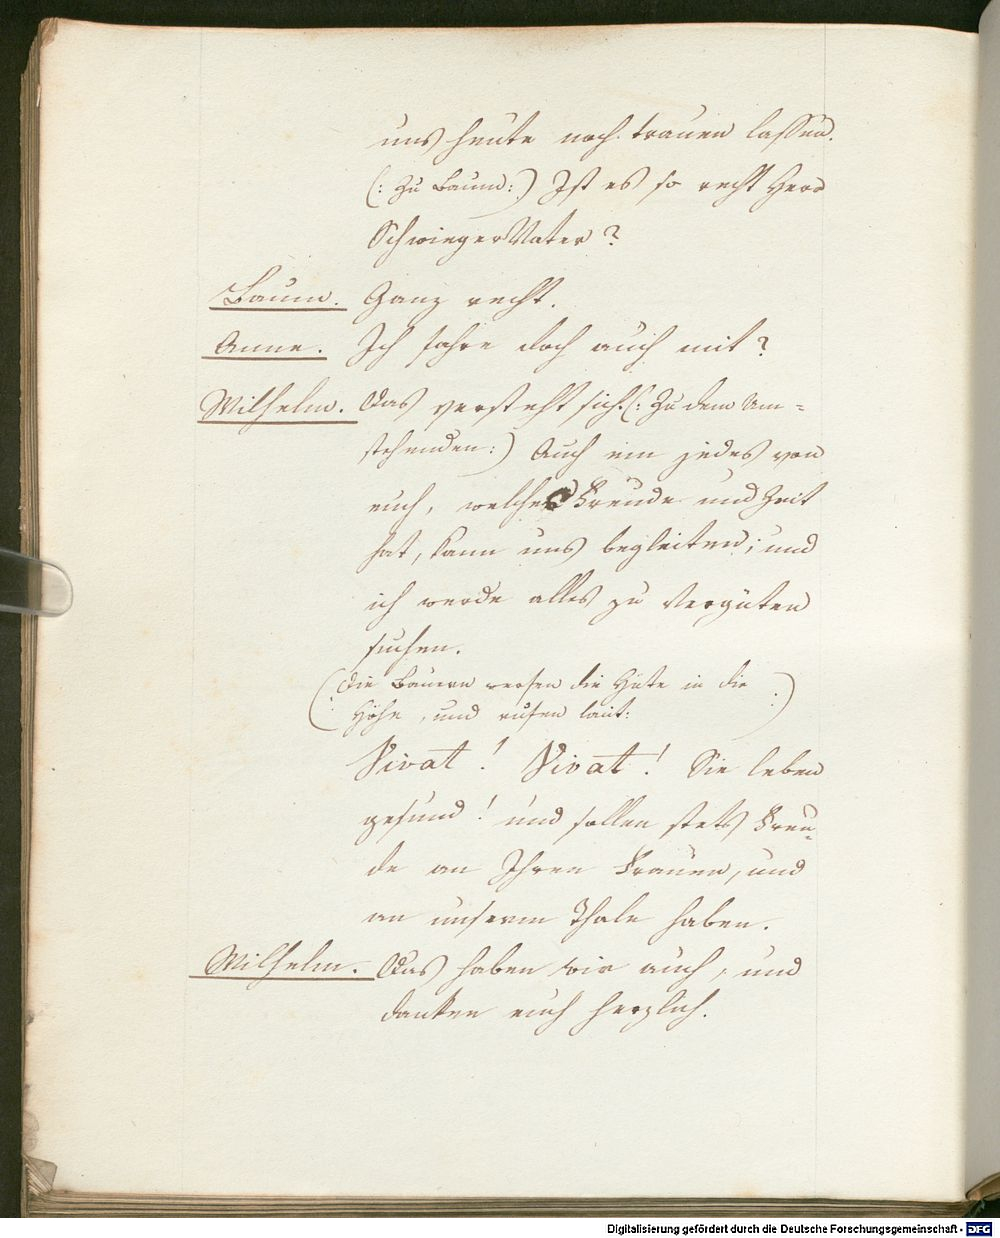 uns heute noch trauen lassen.
(: Zu Baum :) Ist es so recht Herr
SchwiegerVater?
Baum. Ganz recht.
Anne. Ich fahre doch auch mit?
Wilhelm. Das versteht sich. (: Zu dem Um-
stehenden :) Auch ein jedes von
euch, welches Freude und Zeit
hat, kann uns begleiten; und
ich werde alles zu vergüten
suchen.
(: Die Bauern werfen die Hüte in die
Höhe, und rufen laut: :)
Vivat! Vivat! Sie leben
gesund! und sollen stets Freu-
de an Ihren Frauen, und
an unserm Thale haben.
Wilhelm. Das haben wir auch, und
danken euch herzlich.
Digitalisierung gefördert durch die Deutsche Forschungsgemeinschaft - DFG